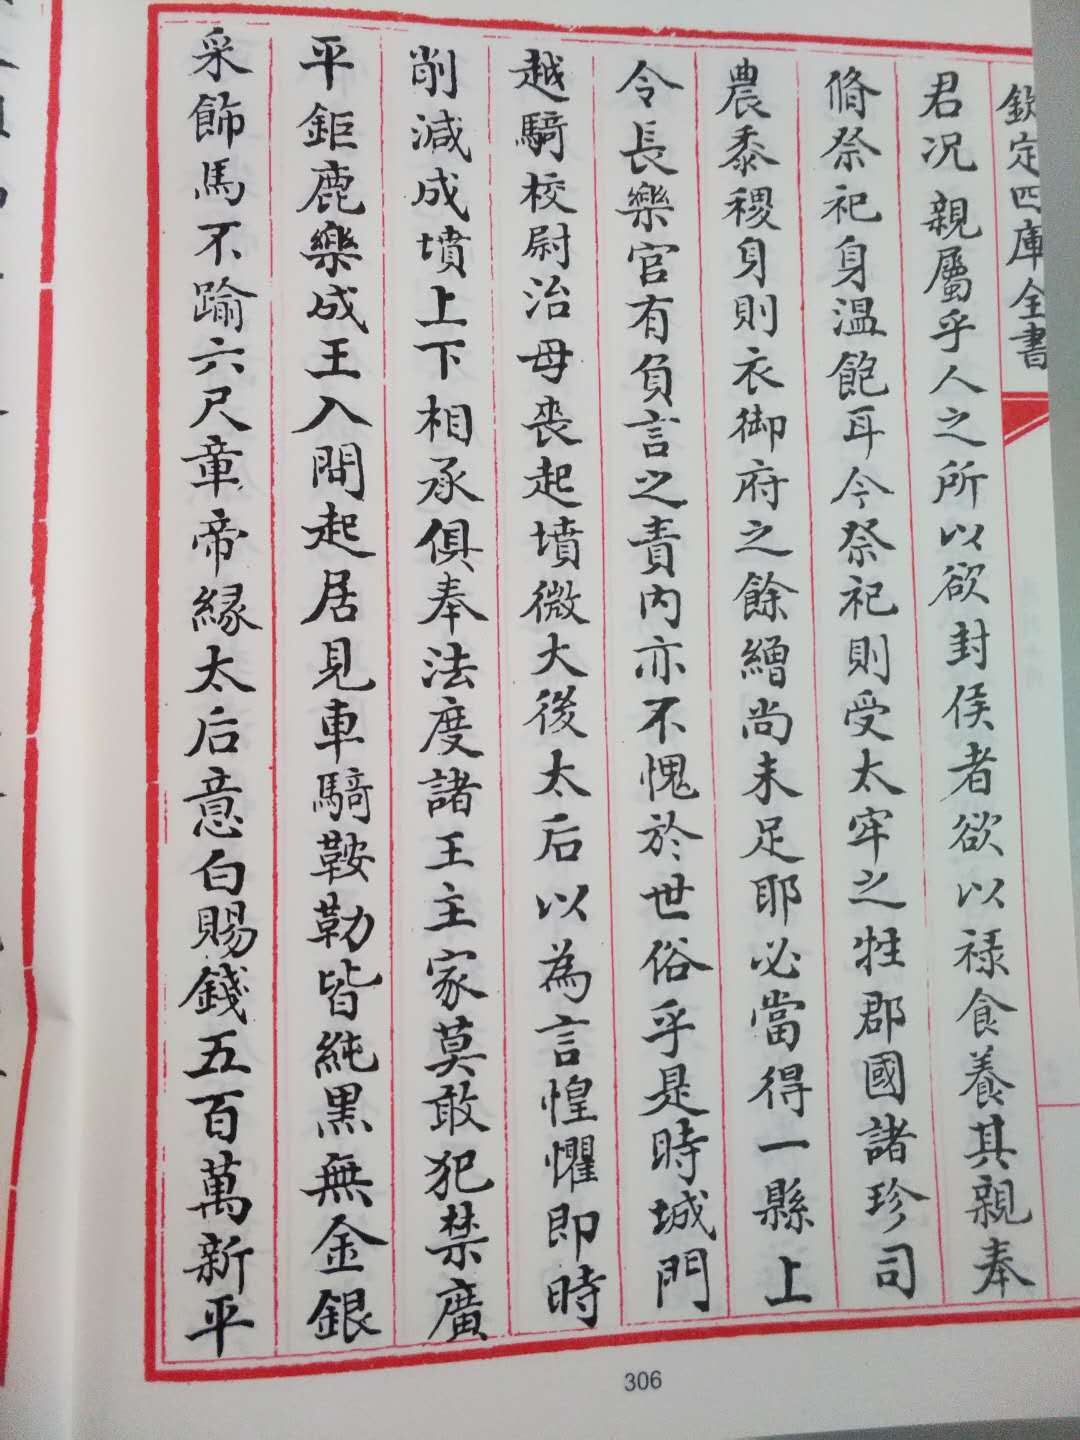 欽定四庫全書
君况親屬乎人之所以欲封侯者欲以祿食養其親奉
脩祭祀身温飽耳今祭祀則受太牢之牲郡國諸珍司
農黍稷身則衣御府之餘繒尚未足耶必當得一縣上
令長樂官有負言之責内亦不愧於世俗乎是時城門
越騎校尉治母喪起墳微大後太后以為言惶懼即時
削減成墳上下相承俱奉法度諸王主家莫敢犯禁廣
平鉅鹿樂成王入問起居見車騎鞍勒皆純黑無金銀
采飾馬不踰六尺章帝緣太后意白賜錢五百萬新平
306